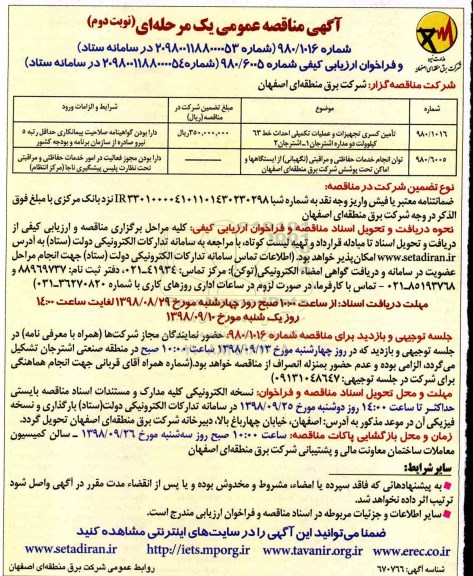 آگهی مناقصه عمومی یک مرحله‌ای (نوبت دوم)
شماره ۹۸۰/۱۰۱۶ (شماره ۲۰۹۸۰۰۱۱۸۸۰۰۰۰۵۳ در سامانه ستاد)
و فراخوان ارزیابی کیفی شماره ۹۸۰/۶۰۰۵ (شماره ۲۰۹۸۰۰۱۱۸۸۰۰۰۰۵٤ در سامانه ستاد)
وزارت نیرو
شرکت برق منطقه‌ای اصفهان
شرکت مناقصه گزار: شرکت برق منطقه‌ای اصفهان
شماره موضوع مبلغ تضمین شرکت در مناقصه (ریال) شرایط و الزامات ورود
۹۸۰/۱۰۱۶ تأمین کسری تجهیزات و عملیات تکمیلی احداث خط ۶۳ کیلوولت دو مداره اشترجان ۱-اشترجان۲ ۳۵۰,۰۰۰,۰۰۰ریال دارا بودن گواهینامه صلاحیت پیمانکاری حداقل رتبه ۵ نیرو صادره از سازمان برنامه و بودجه کشور
۹۸۰/۶۰۰۵ توان انجام خدمات حفاظتی و مراقبتی (نگهبانی) از ایستگاهها و اماکن تحت پوشش شرکت برق منطقه‌ای اصفهان دارا بودن مجوز فعالیت در امور خدمات حفاظتی و مراقبتی تحت نظارت پلیس پیشگیری ناجا (مرکز انتظام)
نوع تضمین شرکت در مناقصه:
ضمانتنامه معتبر یا فیش واریز وجه نقد به شماره شبا IR۳۳۰۱۰۰۰۰٤۱۰۱۱۰۱٤۳۰۲۳۰۲۹۸ نزد بانک مرکزی با مبلغ فوق
الذکر در وجه شرکت برق منطقه‌ای اصفهان
نحوه دریافت و تحویل اسناد مناقصه و فراخوان ارزیابی کیفی: کلیه مراحل برگزاری مناقصه و ارزیابی کیفی از
دریافت و تحویل اسناد تا مبادله قرارداد و تهیه لیست کوتاه، با مراجعه به سامانه تدارکات الکترونیکی دولت (ستاد) به آدرس
www.setadiran.ir امکان‌پذیر خواهد بود. (اطلاعات تماس سامانه تدارکات الکترونیکی دولت (ستاد) جهت انجام مراحل
عضویت در سامانه و دریافت گواهی امضاء الکترونیکی(توکن): مرکز تماس: ٤۱۹۳٤-۰۲۱، دفتر ثبت نام: ۸۸۹۶۹۷۳۷ و
۸۵۱۹۳۷۶۸-۰۲۱ - تماس با کارفرما، در صورت لزوم در ساعات اداری روزهای کاری با شماره ۳۶۲۷۰۸۲۰-۰۳۱)
مهلت دریافت اسناد: از ساعت ۱۰:۰۰ صبح روز چهارشنبه مورخ ۱۳۹۸/۰۸/۲۹ لغایت ساعت ۱٤:۰۰
روز یک شنبه مورخ ۱۳۹۸/۰۹/۱۰
جلسه توجیهی و بازدید برای مناقصه شماره ۹۸۰/۱۰۱۶: حضور نمایندگان مجاز شرکت‌ها (همراه با معرفی نامه) در
جلسه توجیهی و بازدید که در روز چهارشنبه مورخ ۱۳۹۸/۰۹/۱۳ ساعت ۱۰:۰۰ صبح در منطقه صنعتی اشترجان تشکیل
می‌گردد، الزامی بوده و عدم حضور بمنزله انصراف از مناقصه خواهد بود.(شماره همراه آقای قربانی جهت انجام هماهنگی
برای شرکت در جلسه توجیهی: ۰۹۱۳۱۰٤۸۶٤۷)
مهلت و محل تحویل اسناد مناقصه و فراخوان: نسخه الکترونیکی کلیه مدارک و مستندات اسناد مناقصه بایستی
حداکثر تا ساعت ۱٤:۰۰ روز دوشنبه مورخ ۱۳۹۸/۰۹/۲۵ در سامانه تدارکات الکترونیکی دولت(ستاد) بارگذاری و نسخه
فیزیکی آن در موعد مذکور به آدرس: اصفهان، خیابان چهارباغ بالا، دبیرخانه شرکت برق منطقه‌ای اصفهان تحویل گردد.
زمان و محل بازگشایی پاکات مناقصه: ساعت ۱۰:۰۰ صبح روز سه‌شنبه مورخ ۱۳۹۸/۰۹/۲۶ – سالن کمیسیون
معاملات ساختمان معاونت مالی و پشتیبانی شرکت برق منطقه‌ای اصفهان
سایر شرایط:
به پیشنهادهائی که فاقد سپرده یا امضاء، مشروط و مخدوش بوده و یا پس از انقضاء مدت مقرر در آگهی واصل شود
ترتیب اثر داده نخواهد شد.
سایر اطلاعات و جزئیات مربوطه در اسناد مناقصه و فراخوان ارزیابی مندرج است.
ضمنا می‌توانید این آگهی را در سایت‌های اینترنتی مشاهده کنید
www.setadiran.ir http://iets.mporg.ir www.tavanir.org.ir www.erec.co.ir
شناسه آگهی: ۶۷۰۷۶۶ روابط عمومی شرکت برق منطقه‌ای اصفهان